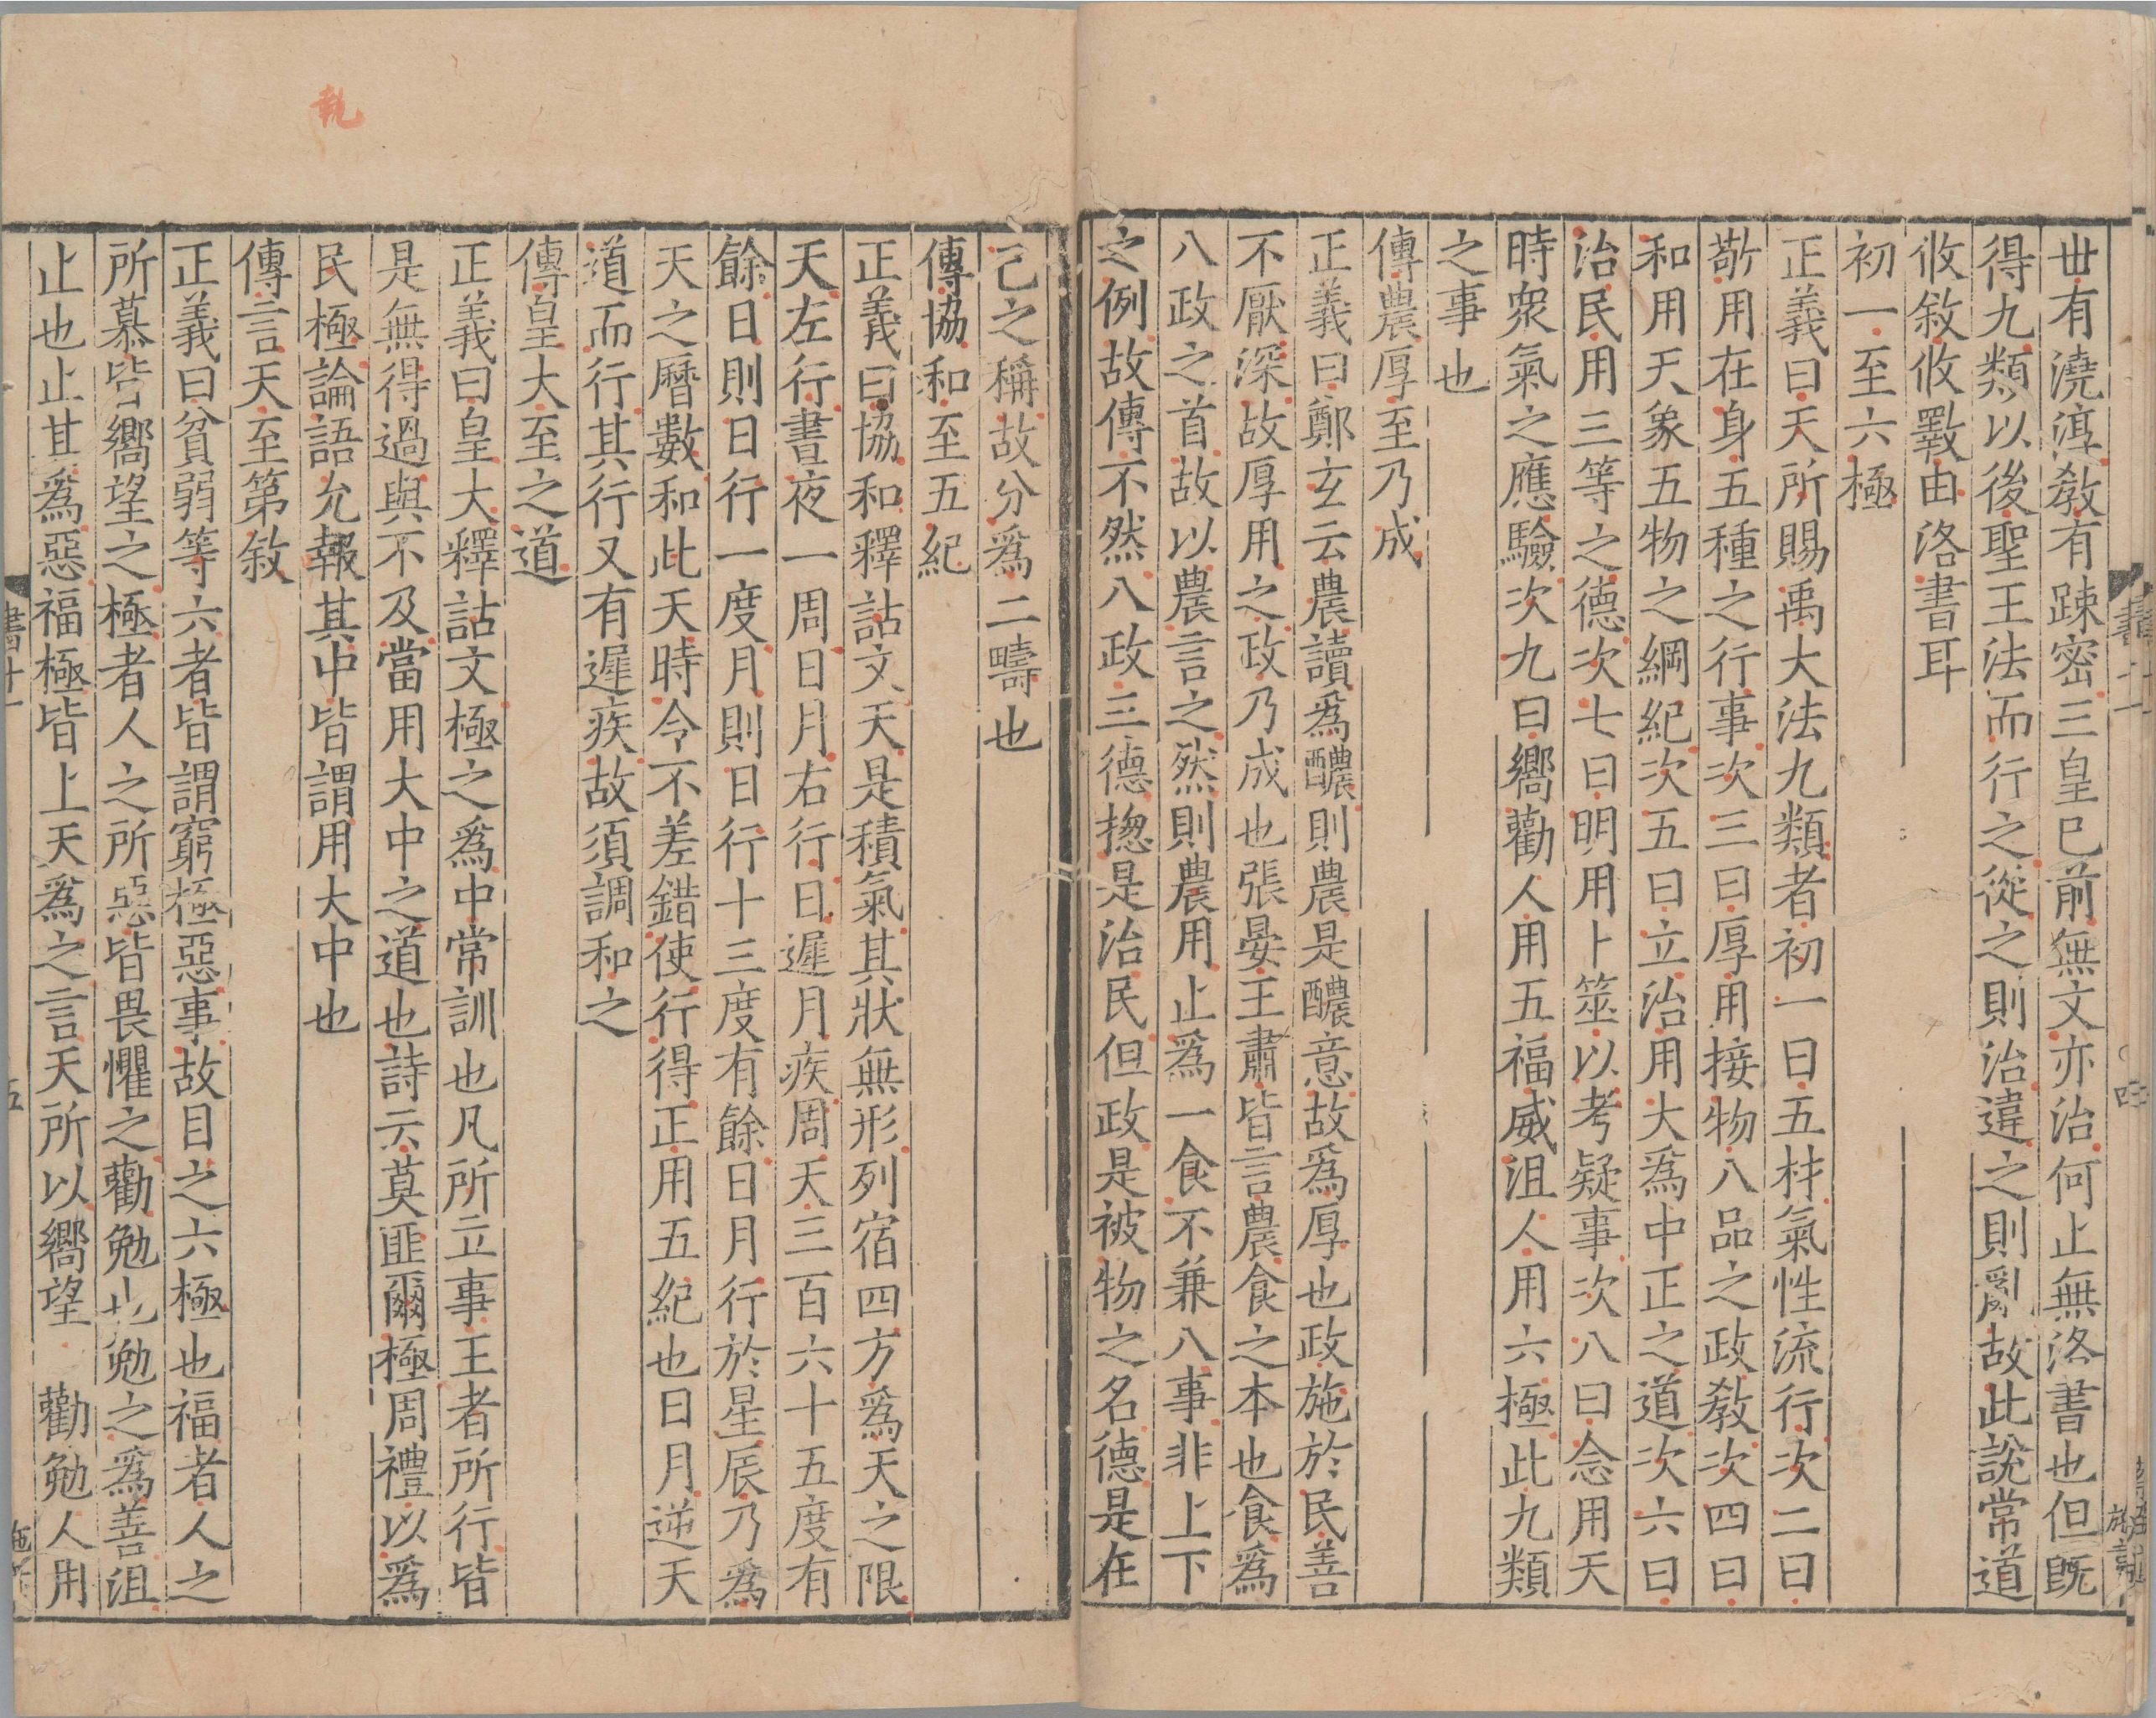 世有澆淳敎有踈密三皇已前無文亦治何止無洛書也但旣
得九類以後聖王法而行之從之則治違之則亂故此說常道
攸敘攸斁由洛書耳
初一至六極
正義曰天所賜禹大法九類者初一曰五材氣性流行次二曰
敬用在身五種之行事次三曰厚用接物八品之政敎次四曰
和用天象五物之綱紀次五曰立治用大爲中正之道次六曰
治民用三等之德次七曰明用卜筮以考疑事次八曰念用天
時衆氣之應驗次九曰嚮勸人用五福威沮人用六極此九類
之事也
傳農厚至乃成
正義曰鄭玄云農讀爲醲則農是醲意故爲厚也政施於民善
不厭深故厚用之政乃成也張晏王肅皆言農食之本也食爲
八政之首故以農言之然則農用止爲一食不兼八事非上下
之例故傳不然八政三德揔是治民但政是被物之名德是在
己之稱故分爲二疇也
傳協和至五紀
正義曰協和釋詁文天是積氣其狀無形列宿四方爲天之限
天左行晝夜一周日月右行日遲月疾周天三百六十五度有
餘日則日行一度月則日行十三度有餘日月行於星辰乃爲
天之曆數和此天時令不差錯使行得正用五紀也日月逆天
道而行其行又有遲疾故須調和之
傳皇大至之道
正義曰皇大釋詁文極之爲中常訓也凡所立事王者所行皆
是無得過與不及當用大中之道也詩云莫匪爾極周禮以爲
民極論語允執其中皆謂用大中也
傳言天至第敘
正義曰貧弱等六者皆謂窮極惡事故目之六極也福者人之
所慕皆嚮望之極者人之所惡皆畏懼之勸勉也勉之爲善沮
止也止其爲惡福極皆上天爲之言天所以嚮望 勸勉人用
執
書十一
四
書十一
五